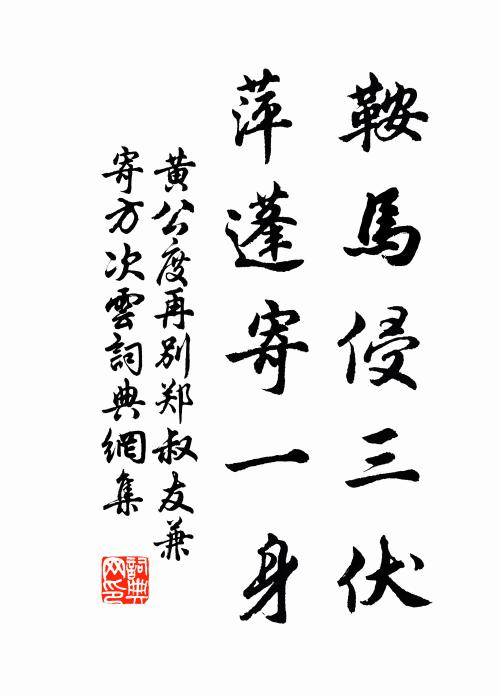 鞍馬侵三伏
萍蓬寄一身
黄公度再别郑叔友兼
寄方次雲詞典網集
詞典
网印